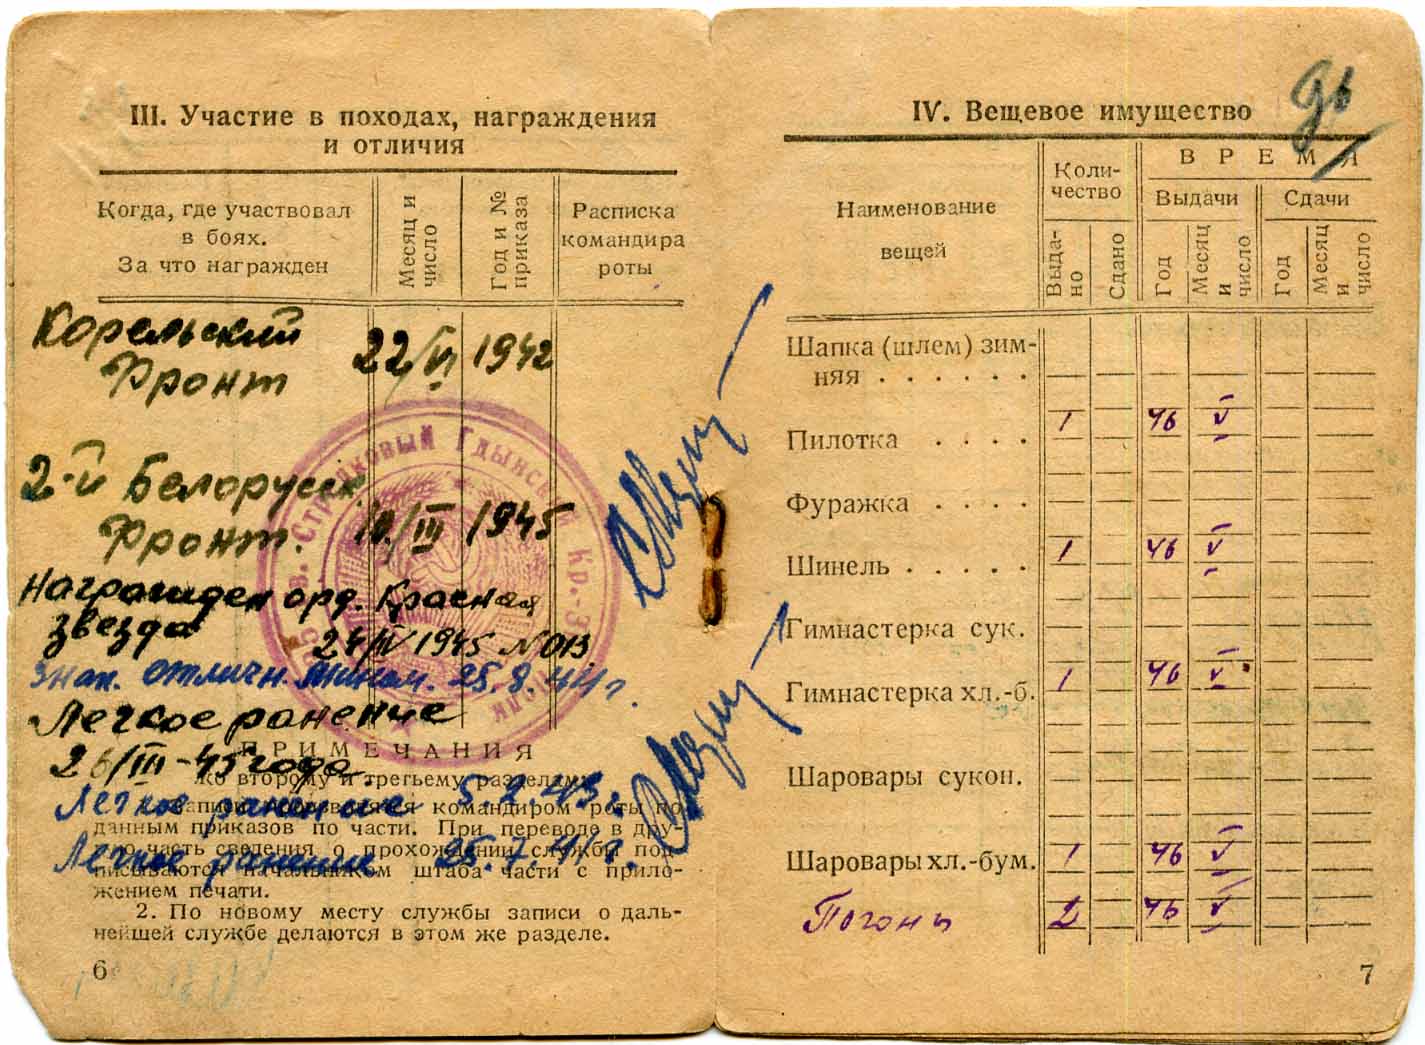 III. Участие в походах, награждения
и отличия
Когда, где участвовал
в боях.
За что награжден
Месяц и
число
Год и №
приказа
Расписка
командира
роты
Корельский
Фронт
22/VI 1942
2-й Белорусск
Фронт.
10/III 1945
Награжден орд. Красная
звезда
24/IV 1945 N 013
Знак. отличн. мином. 25.8.44г.
Легкое ранение
26/III-45 года.
ПРИМЕЧАНИЯ
ко второму и третьему разделам
Легкое ранение 5.2.43г.
записи производятся командиром роты по
данным приказов по части. При переводе в дру-
гую часть сведения о прохождении службы под-
Легкое ранение 25.7.41г.
писываются начальником штаба части с прило-
жением печати.
2. По новому месту службы записи о даль-
нейшей службе делаются в этом же разделе.
6
в. Стрелковый Гдынский Кр.-З
полк
IV. Вещевое имущество
Наименование
вещей
Коли-
чество
ВРЕМЯ
Выдачи
Сдачи
Выда-
но
Сдано
Год
Месяц
и
число
Год
Месяц
и
число
Шапка (шлем) зим-
няя . . . . . .
Пилотка . . . . 1 46 V
Фуражка . . . .
Шинель . . . . . 1 46 V
Гимнастерка сук.
Гимнастерка хл.-б. 1 46 V
Шаровары сукон.
Шаровары хл.-бум. 1 46 V
Погоны 2 46 V
7